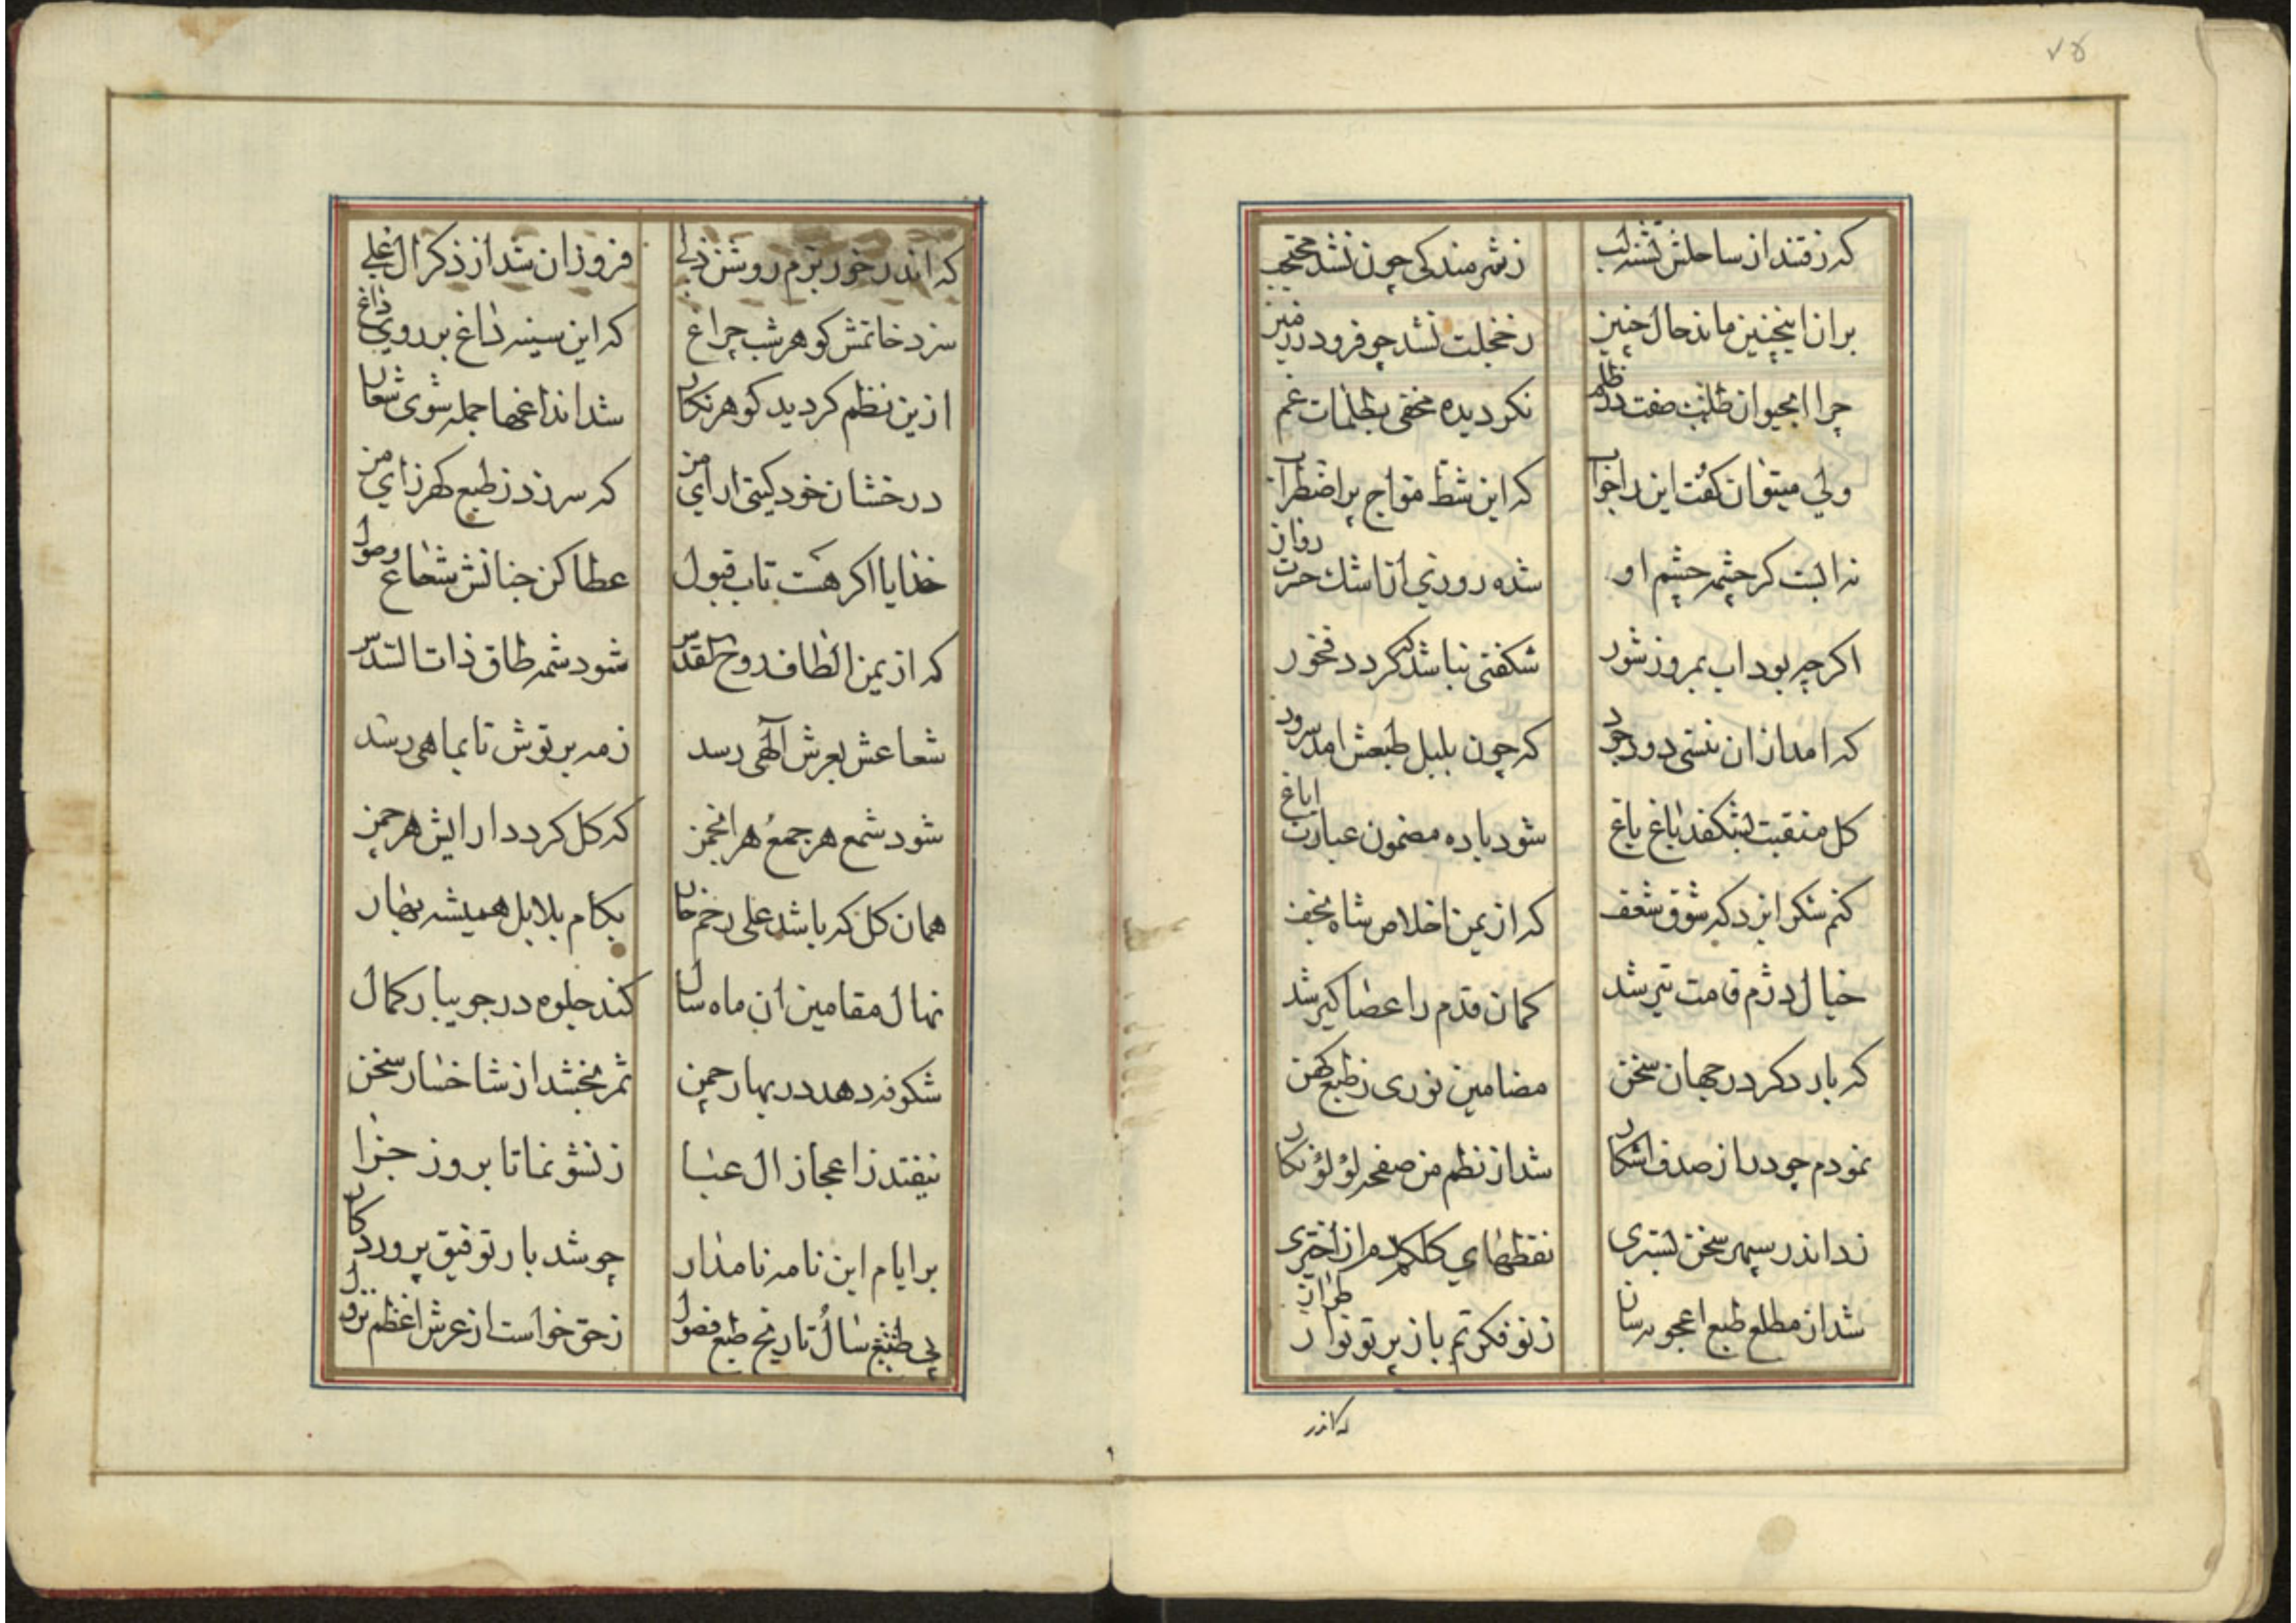 ۷۵
که رفتند از ساحلش تشنه لب زشرمندکی چون نشد محتجب
بران اینچنین ماند حال چنین زخجلت نشد چو فرو در زمین
چرا ابحیوان ظلمت صفت نکردیده مخفی بظلمات غم
ولی میتوان کفت این را جواب که این شط مواج پر اضطراب
نه ابست کر چشمه چشم او شده روزی از اشک حسرت روان
اکرچه بود اب بمروز شور شکفتی نباشد که کردد
که امد ازان در وجود که چون بلبل طبعش امد سرود
کل منقبت بشکفد باغ باغ شود باده مضمون عبارت ایاغ
کنم شکر ایزد که شوق شعف که از یمن اخلاص شاه نجف
خیال دژم قامت تیر شد کمان قدم را عصا کیر شد
که بار دکر در جهان سخن مضامین نوری زطبع کهن
نمودم چو در از صدف اشکار شد از نظم من صفحه لؤلؤ نکار
زد اندر سپهر سخن بستری نقطهای کلکم دم از اختری
شد از مطلع طبع اعجوبه سان زنو فکرتم باز پرتو
که اندر
که اندر خور بزم روشن دلی فروزان شد از ذکر ال علی
سزد خاتمش کوهر شب چراغ که این سینه داغ بر روی داغ
ازین نظم کردید کوهر نکار شد اندا غمها جمله شوی شعار
درخشان خود کیتی ارای من که سر زد زطبع کهرزای من
خدایا اکر هست تاب قبول عطا کن جنانش شعاع وصول
که از یمن الطاف روح القدس شود شمه طاق ذات السدس
شعاعش بعرش آلهی رسد زمه پرتوش تا بماهی رسد
شود شمع هر جمع هر انجمن که کل کردد ارایش هر چمن
همان کل که باشد علی رغم خار بکام بلابل همیشه بهار
نهال مقامین ان ماه سال کند جلوه در جویبار کمال
شکوفه دهد در بهار چمن ثمر بخشد از شاخسار سخن
نیفتد ز اعجاز ال عبا زنشو نما تا بروز جزا
بر ایام این نامه نامدار چو شد یار توفیق پروردکار
پی سال تاریخ طبع فضول زحق خواست از عرش اعظم نزول